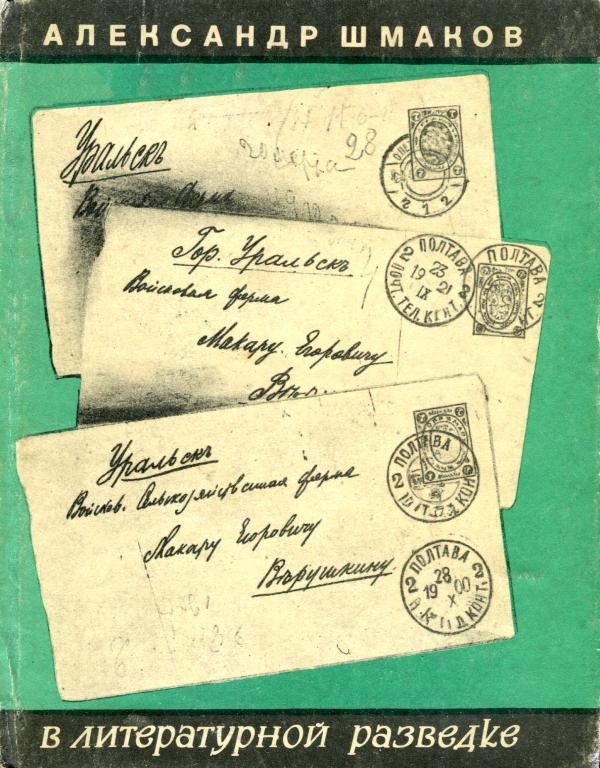 АЛЕКСАНДР ШМАКОВ
Уральскъ
28
212
Гор. Уральскъ
Войсковая ферма
Макару Егоровичу
ПОЛТАВА
23
19 21
IX
2 ПОЧТ. ТЕЛ. КОНТ. 2
ПОЛТАВА
2
Уральскъ
Войсков. Сельскохозяйственная ферма
Макару Егоровичу
Вѣрушкину
ПОЛТАВА
2
КОНТ
ПОЛТАВА
28
19 00
X
2 КОНТ. 2
в литературной разведке